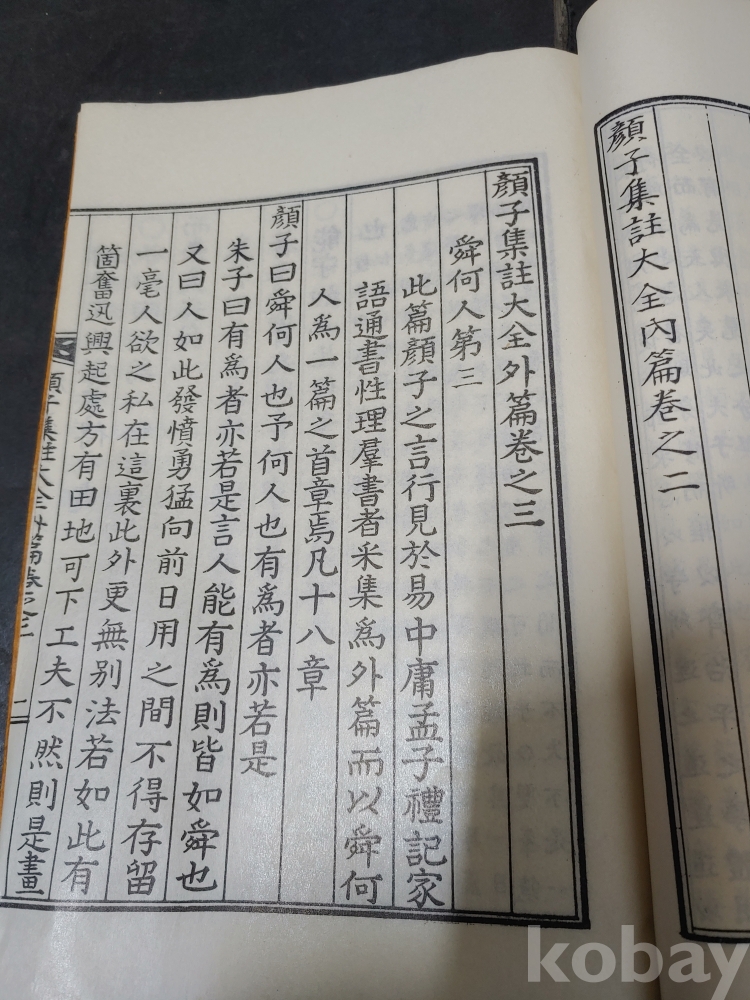 顏子集註大全內篇卷之二
顏子集註大全外篇卷之三
舜何人第三
此篇顏子之言行見於易中庸孟子禮記家
語通書性理羣書者采集爲外篇而以舜何
人爲一篇之首章焉凡十八章
顏子曰舜何人也予何人也有爲者亦若是
朱子曰有爲者亦若是言人能有爲則皆如舜也
又曰人如此發憤勇猛向前日用之間不得存留
一毫人欲之私在這裏此外更無別法若如此有
箇奮迅興起處方有田地可下工夫不然則是畫
顏子集註大全外篇卷之三
二
kobay